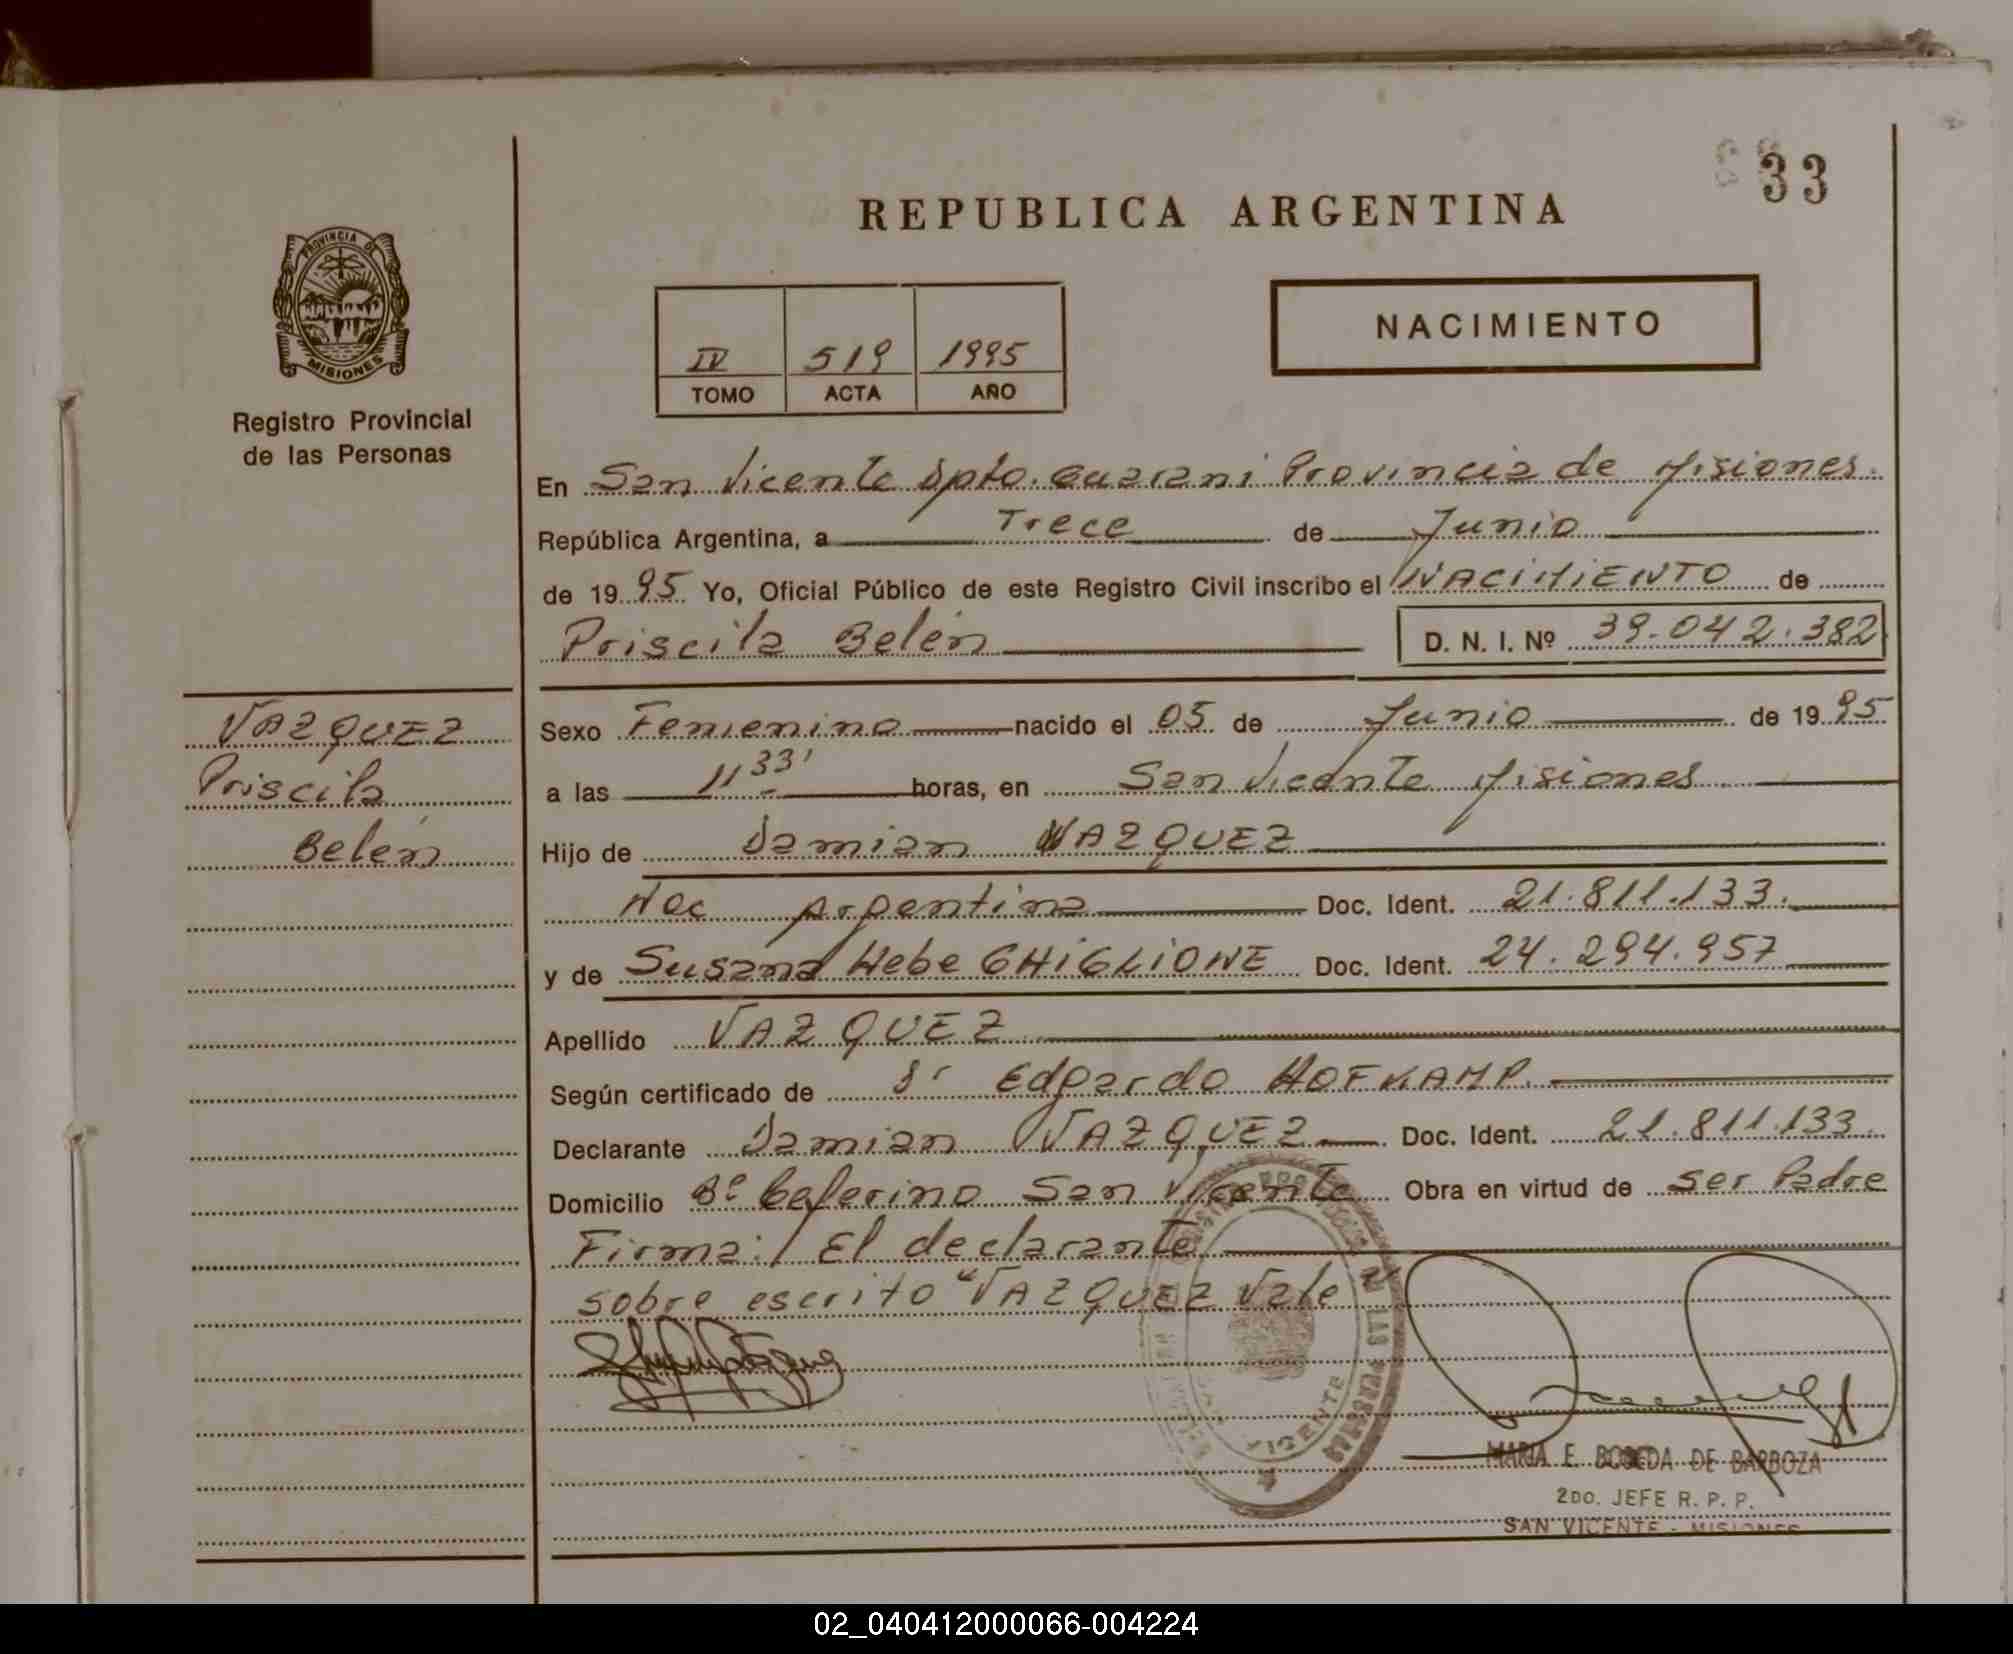 33
REPUBLICA ARGENTINA
PROVINCIA DE
MISIONES
Registro Provincial
de las Personas
NACIMIENTO
IV 519 1995
TOMO ACTA AÑO
En San Vicente Dpto. Guarani Provincia de Misiones.
República Argentina, a Trece de Junio
de 1995 Yo, Oficial Público de este Registro Civil inscribo el NACIMIENTO de
Priscila Belén D. N. I. Nº 39.042.382
VAZQUEZ
Priscila
Belén
Sexo Femenino nacido el 05 de Junio de 1995
a las 11 33' horas, en San Vicente Misiones
Hijo de Damian VAZQUEZ
Nac Argentina Doc. Ident. 21.811.133.
y de Susana Hebe GHIGLIONE Doc. Ident. 24.294.957
Apellido VAZQUEZ
Según certificado de Dr Edgardo HOFKAMP.
Declarante Damian VAZQUEZ Doc. Ident. 21.811.133.
Domicilio Bº Ceferino San Vicente Obra en virtud de ser Padre
Firma: El declarante
sobre escrito "VAZQUEZ Vale
VICENTE
MARIA E. BOBEDA DE BARBOZA
2DO. JEFE R. P. P.
SAN VICENTE - MISIONES
02_040412000066-004224